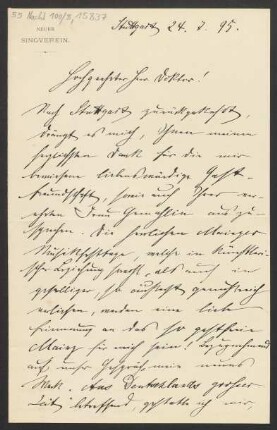 53 Nachl 100/B, 15837
NEUER
SINGVEREIN.
Stuttgart 24. 7. 95.
Hochgeehrter Herr Doktor!
Nach Stuttgart zurückgekehrt,
drängt es mich, Ihnen meinen
herzlichsten Dank für die mir
erwiesene liebenswürdige Gast-
freundschaft, sowie auch Ihrer
Frau Gemahlin auszu-
sprechen. Die herrlichen Mainzer
Musikfesttage, welche in künstleri-
scher Beziehung sowohl, als auch in
geselliger, so
verliefen, werden eine liebe
Erinnerung an das so gastfreie
Mainz für mich sein! Bezugnehmend
auf unser Gespräch, mein neues
Werk "Aus Deutschlands grosser
Zeit" betreffend, gestatte ich mir,